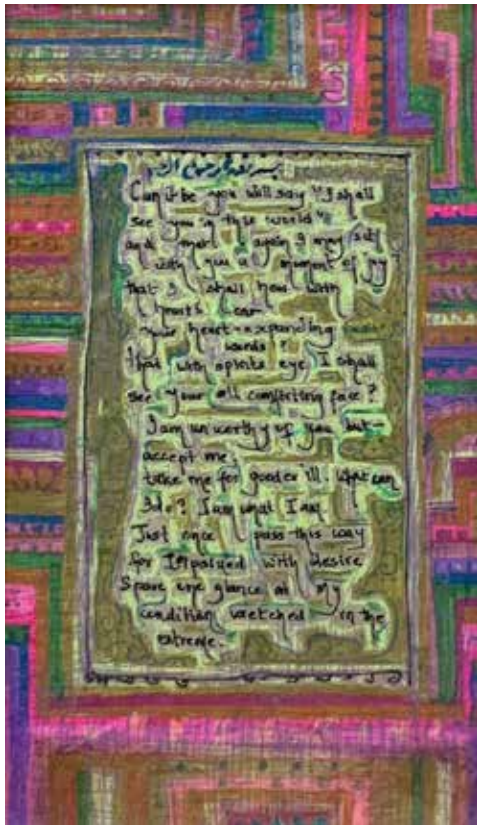 Can it be you will say "I shall
see you in this world"
and again I may sit
with you a moment of joy
that I shall hear with
heart's ear
your heart-expanding
words?
that with spirits eye I shall
see your all comforting face?
I am unworthy of you but-
accept me,
take me for good or ill. What can
I do? I am what I am.
Just once pass this way
for I with desire
Spare one glance at my
condition wretched in the
extreme.